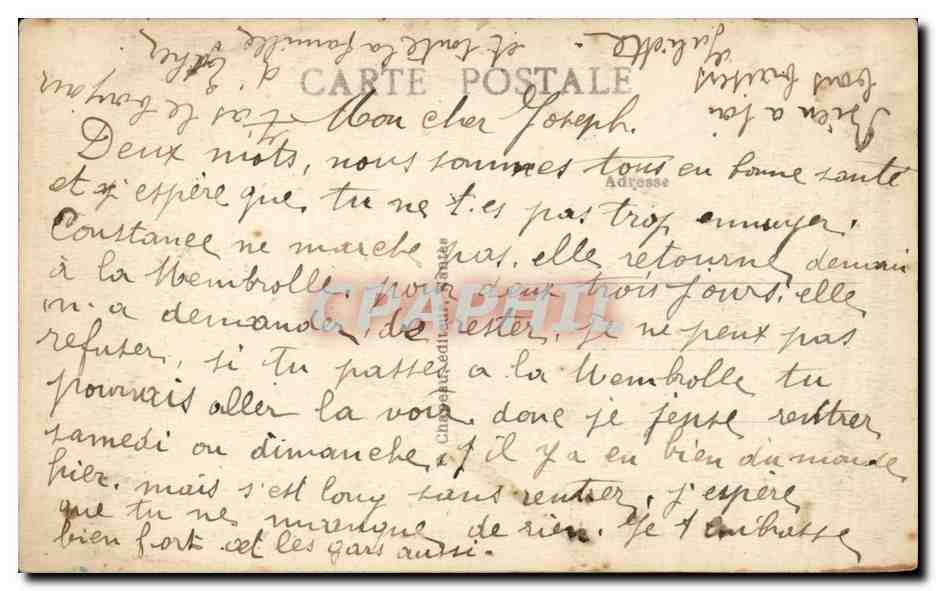 CARTE POSTALE
Mon cher Joseph.
Deux mots, nous sommes tous en bonne santé
Adresse
et j'espère que, tu ne t.es pas trop ennuyer.
Constance ne marche pas. elle retourne demain
à la Membrolle. pour deux trois jours, elle
CPAPHIL
m'a demander, de rester, je ne peux pas
refuser, si tu passes a la Membrolle tu
pourrais aller la voir. donc je pense rentrer
samedi ou dimanche, il y a eu bien du monde
hier. mais s'est long sans rentrer. j'espère
que tu ne menque de rien. Je t'embrasse
bien fort et les gars aussi.
Chapeau, éditeur, Nantes
Bien a toi
bons baisers
Juliette.
et toute la famille